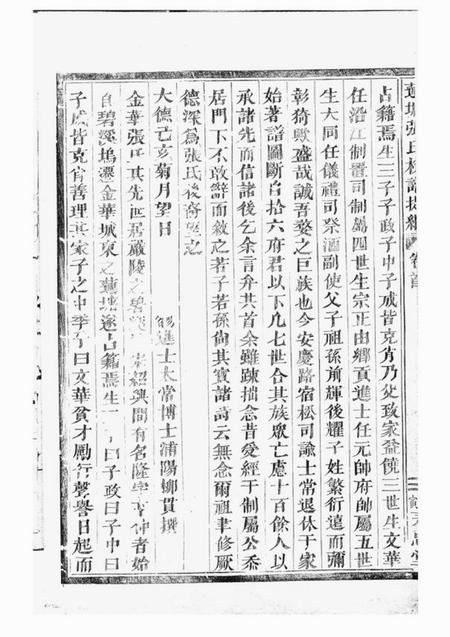 蓮塘張氏校譜捷編 卷首
占籍焉生三子子政子中子戒皆克肖乃父致家益饒三世生文華
任沿江制置司制屬四世生宗正由鄉貢進士任元帥府帥屬五世
生大同任儀禮司祭酒副使父子祖孫前輝後耀子姓繁衍遠而彌
彰猗歟盛哉誠吾婺之巨族也今安慶路宿松司諭士常退休于家
始著譜圖斷自十六府君以下凡七世合其族眾亡慮十百餘人以
承諸先而信諸後乞余言弁其首余雖踈拙念昔愛經于制屬公忝
居門下不敢辭而敘之若子若孫尚其寶諸詩云無念爾祖聿修厥
德深為張氏後裔望之
大德己亥菊月望日
鄉進士太常博士浦陽柳貫撰
金華張氏其先世居嚴陵之碧溪 宋紹興間有名隆字 仲者始
自碧溪塢遷金華城東之蓮塘遂占籍焉生 曰子政曰子中曰
子戒皆克肖善理其家子之中季子曰文華質才勵行聲譽日起而